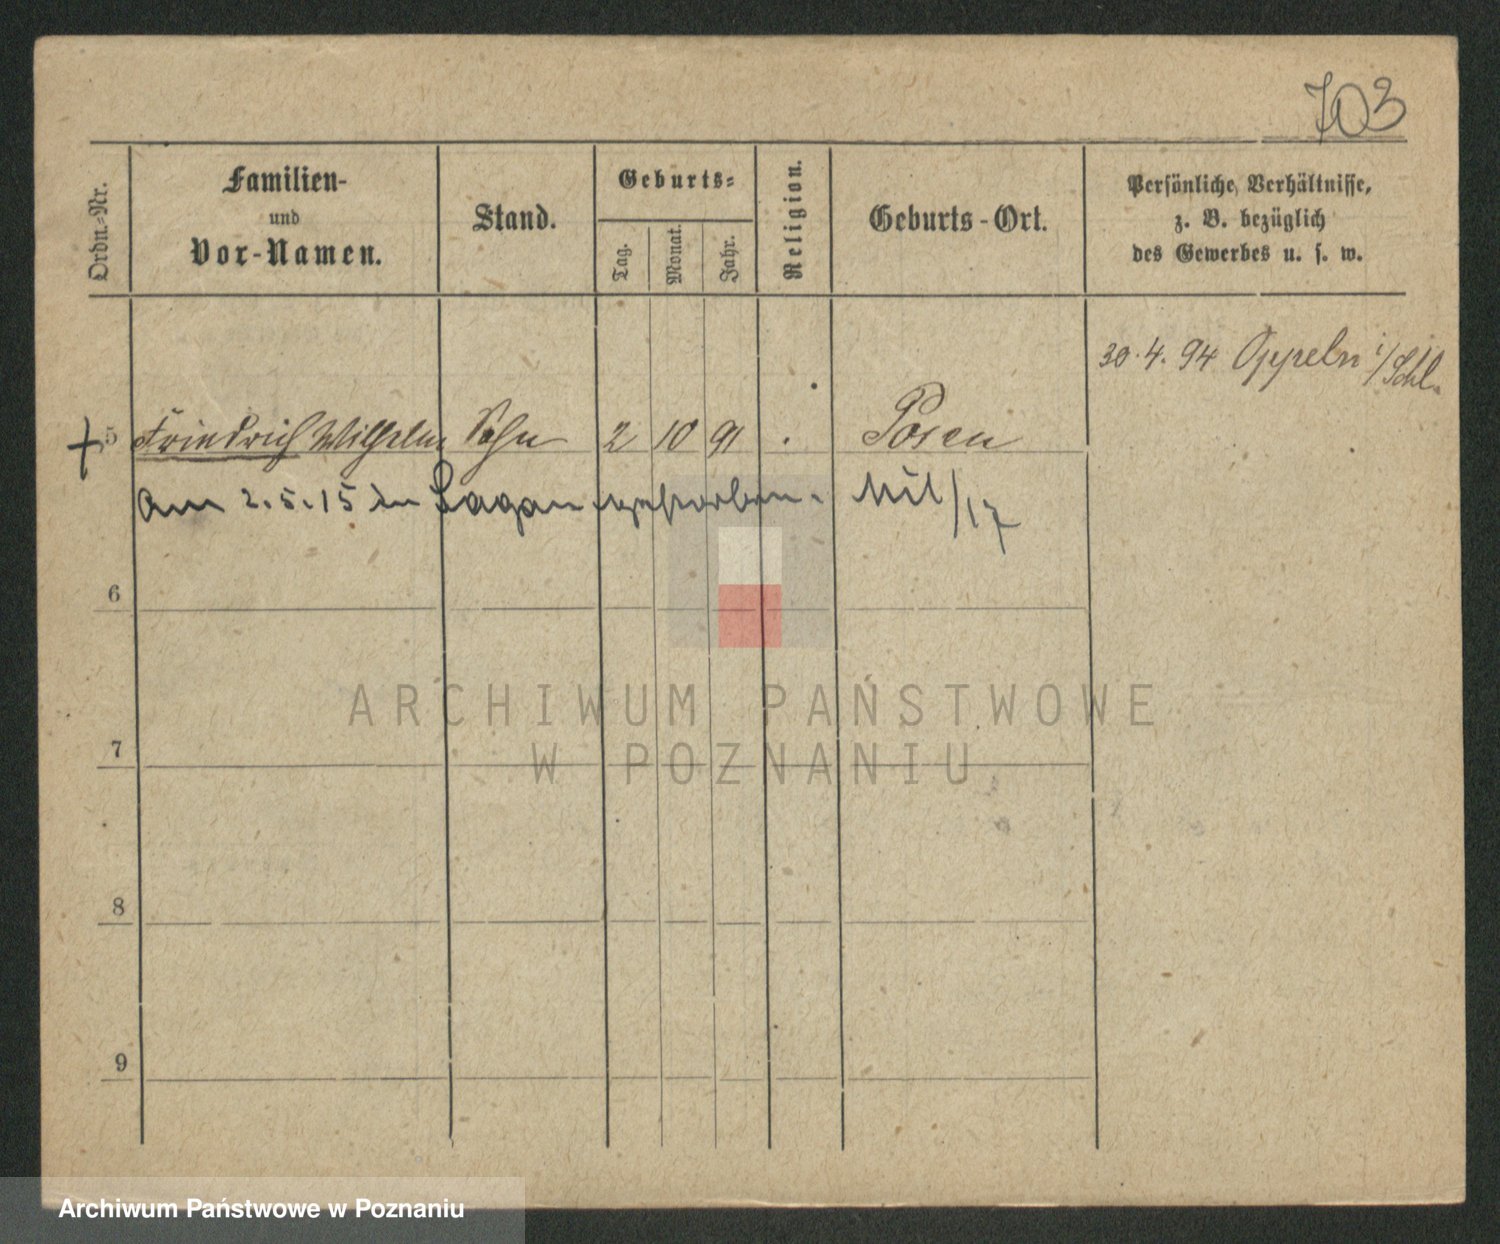 703
Ordn.-Nr.
Familien-
und
Vor-Namen.
Stand.
Geburts-
Tag.
Monat.
Jahr.
Religion.
Geburts-Ort.
Persönliche Verhältnisse,
z. B. bezüglich
des Gewerbes u. s. w.
30.4.94 Oppeln i/Schl.
+ 5 Friedrich Wilhelm Sohn 2 10 91 . Posen
Am 2.5.15 in Sagan gestorben. Mil/17
6
7
8
9
ARCHIWUM PAŃSTWOWE
W POZNANIU
Archiwum Państwowe w Poznaniu